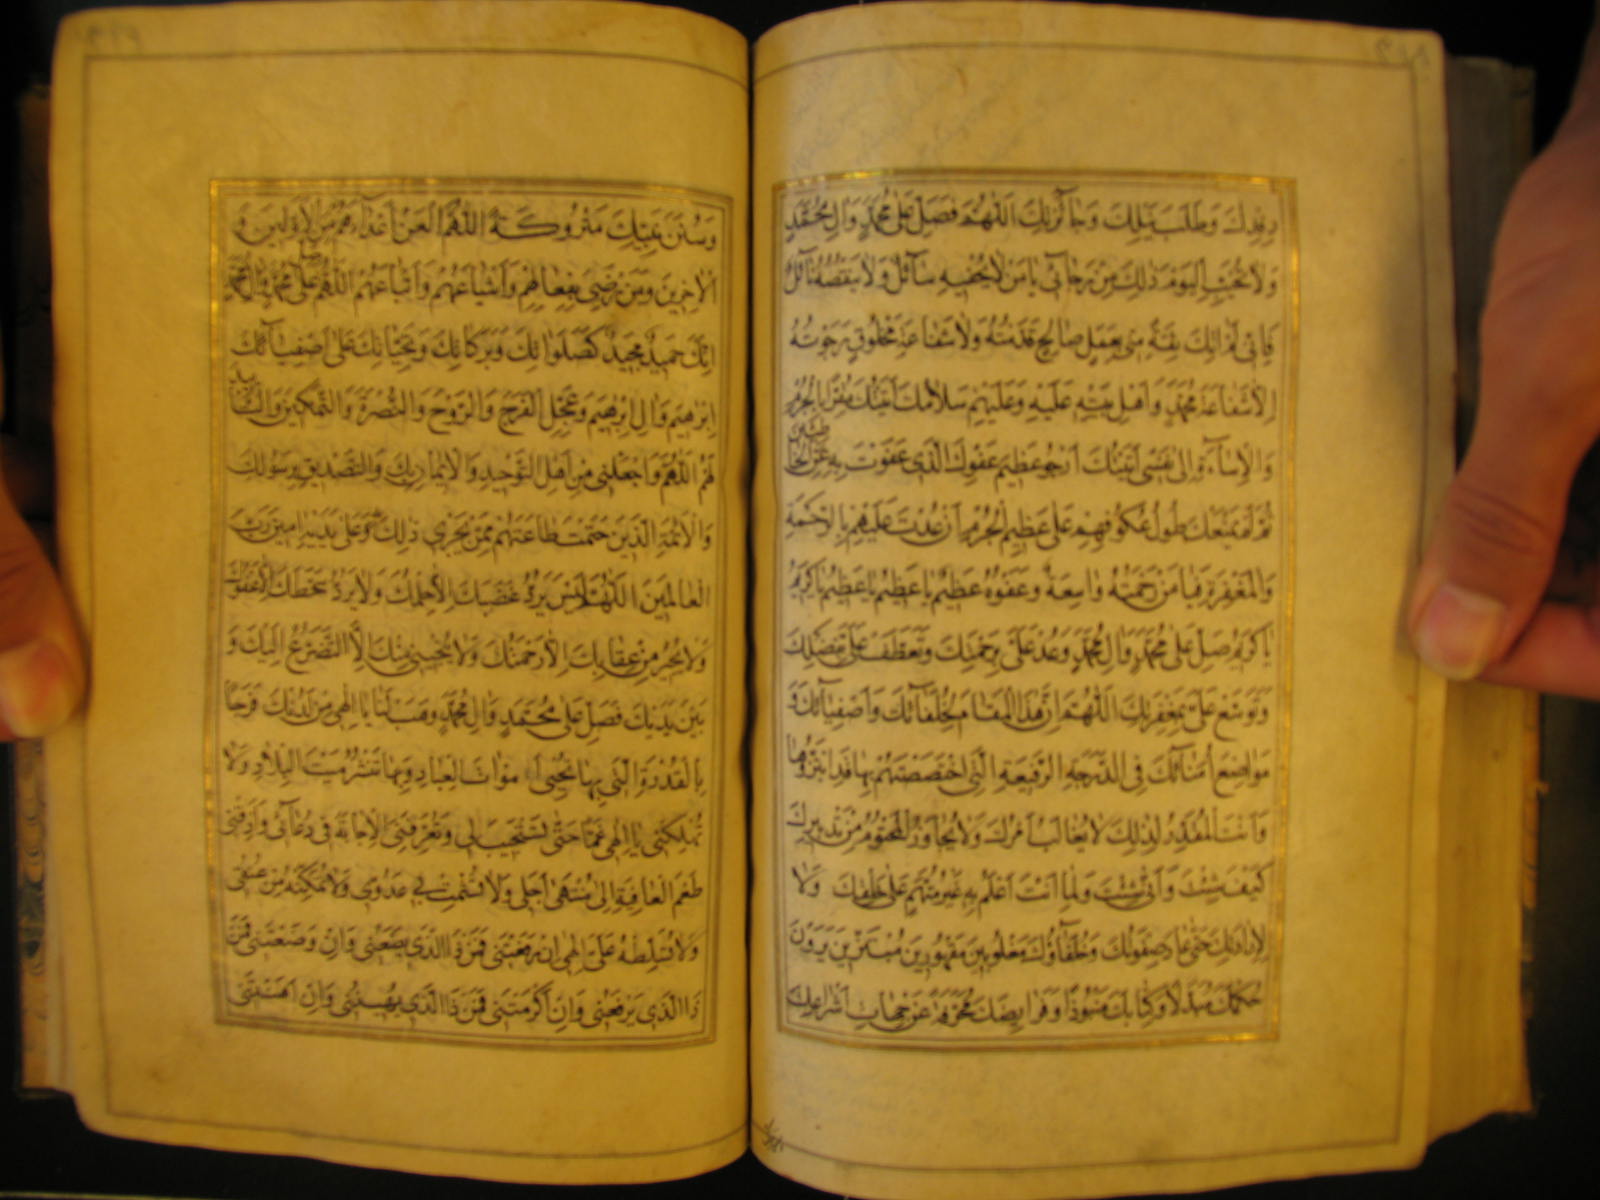 رفدك وطلب نيلك وجائزتك اللهم فصل على محمد وال محمد
ولا تخيب اليوم ذلك من رجائي يا من لا يحفيه سائل ولا ينقصه نائل
فاني لم اتك ثقة مني بعمل صالح قدمته ولا شفاعة مخلوق رجوته
الا شفاعة محمد واهل بيته عليه وعليهم سلامك اتيتك مقرا بالجرم
والاساءة الى نفسي اتيتك ارجو عظيم عفوك الذي عفوت به عن الخاطئين
ثم لم يمنعك طول عكوفهم على عظيم الجرم ان عدت عليهم بالرحمة
والمغفرة فيا من رحمته واسعة وعفوه عظيم يا عظيم يا عظيم يا كريم
يا كريم صل على محمد وال محمد وعد علي برحمتك وتعطف علي بفضلك
وتوسع علي بمغفرتك اللهم ان هذا المقام لخلفائك واصفيائك و
مواضع امنائك في الدرجة الرفيعة التي اختصصتهم بها قد ابتزوها
وانت المقدر لذلك لا يغالب امرك ولا يجاوز المحتوم من تدبيرك
كيف شئت وانى شئت ولما انت اعلم به غير متهم على خلقك ولا
لارادتك حتى عاد صفوتك وخلفاؤك مغلوبين مقهورين مبتزين يرون
حكمك مبدلا وكتابك منبوذا وفرايضك محرفة عن جهات اشراعك
وسنن نبيك متروكة اللهم العن اعداءهم من الاولين و
الاخرين ومن رضي بفعالهم واشياعهم واتباعهم اللهم صل على محمد وال محمد
انك حميد مجيد كصلواتك وبركاتك وتحياتك على اصفيائك
ابرهيم وال ابرهيم وعجل الفرج والروح والنصرة والتمكين والتاييد
لهم اللهم واجعلني من اهل التوحيد والايمان بك والتصديق برسولك
والائمة الذين حتمت طاعتهم ممن يجري ذلك به وعلى يديه امين رب
العالمين اللهم ليس يرد غضبك الا حلمك ولا يرد سخطك الا عفوك
ولا يجير من عقابك الا رحمتك ولا ينجيني منك الا التضرع اليك و
بين يديك فصل على محمد وال محمد وهب لنا يا الهي من لدنك فرجا
بالقدرة التي بها تحيي اموات العباد وبها تنشر ميت البلاد ولا
تهلكني يا الهي غما حتى تستجيب لي وتعرفني الاجابة في دعائي واذقني
طعم العافية الى منتهى اجلي ولا تشمت بي عدوي ولا تمكنه من عنقي
ولا تسلطه علي الهي ان رفعتني فمن ذا الذي يضعني وان وضعتني فمن
ذا الذي يرفعني وان اكرمتني فمن ذا الذي يهينني وان اهنتني